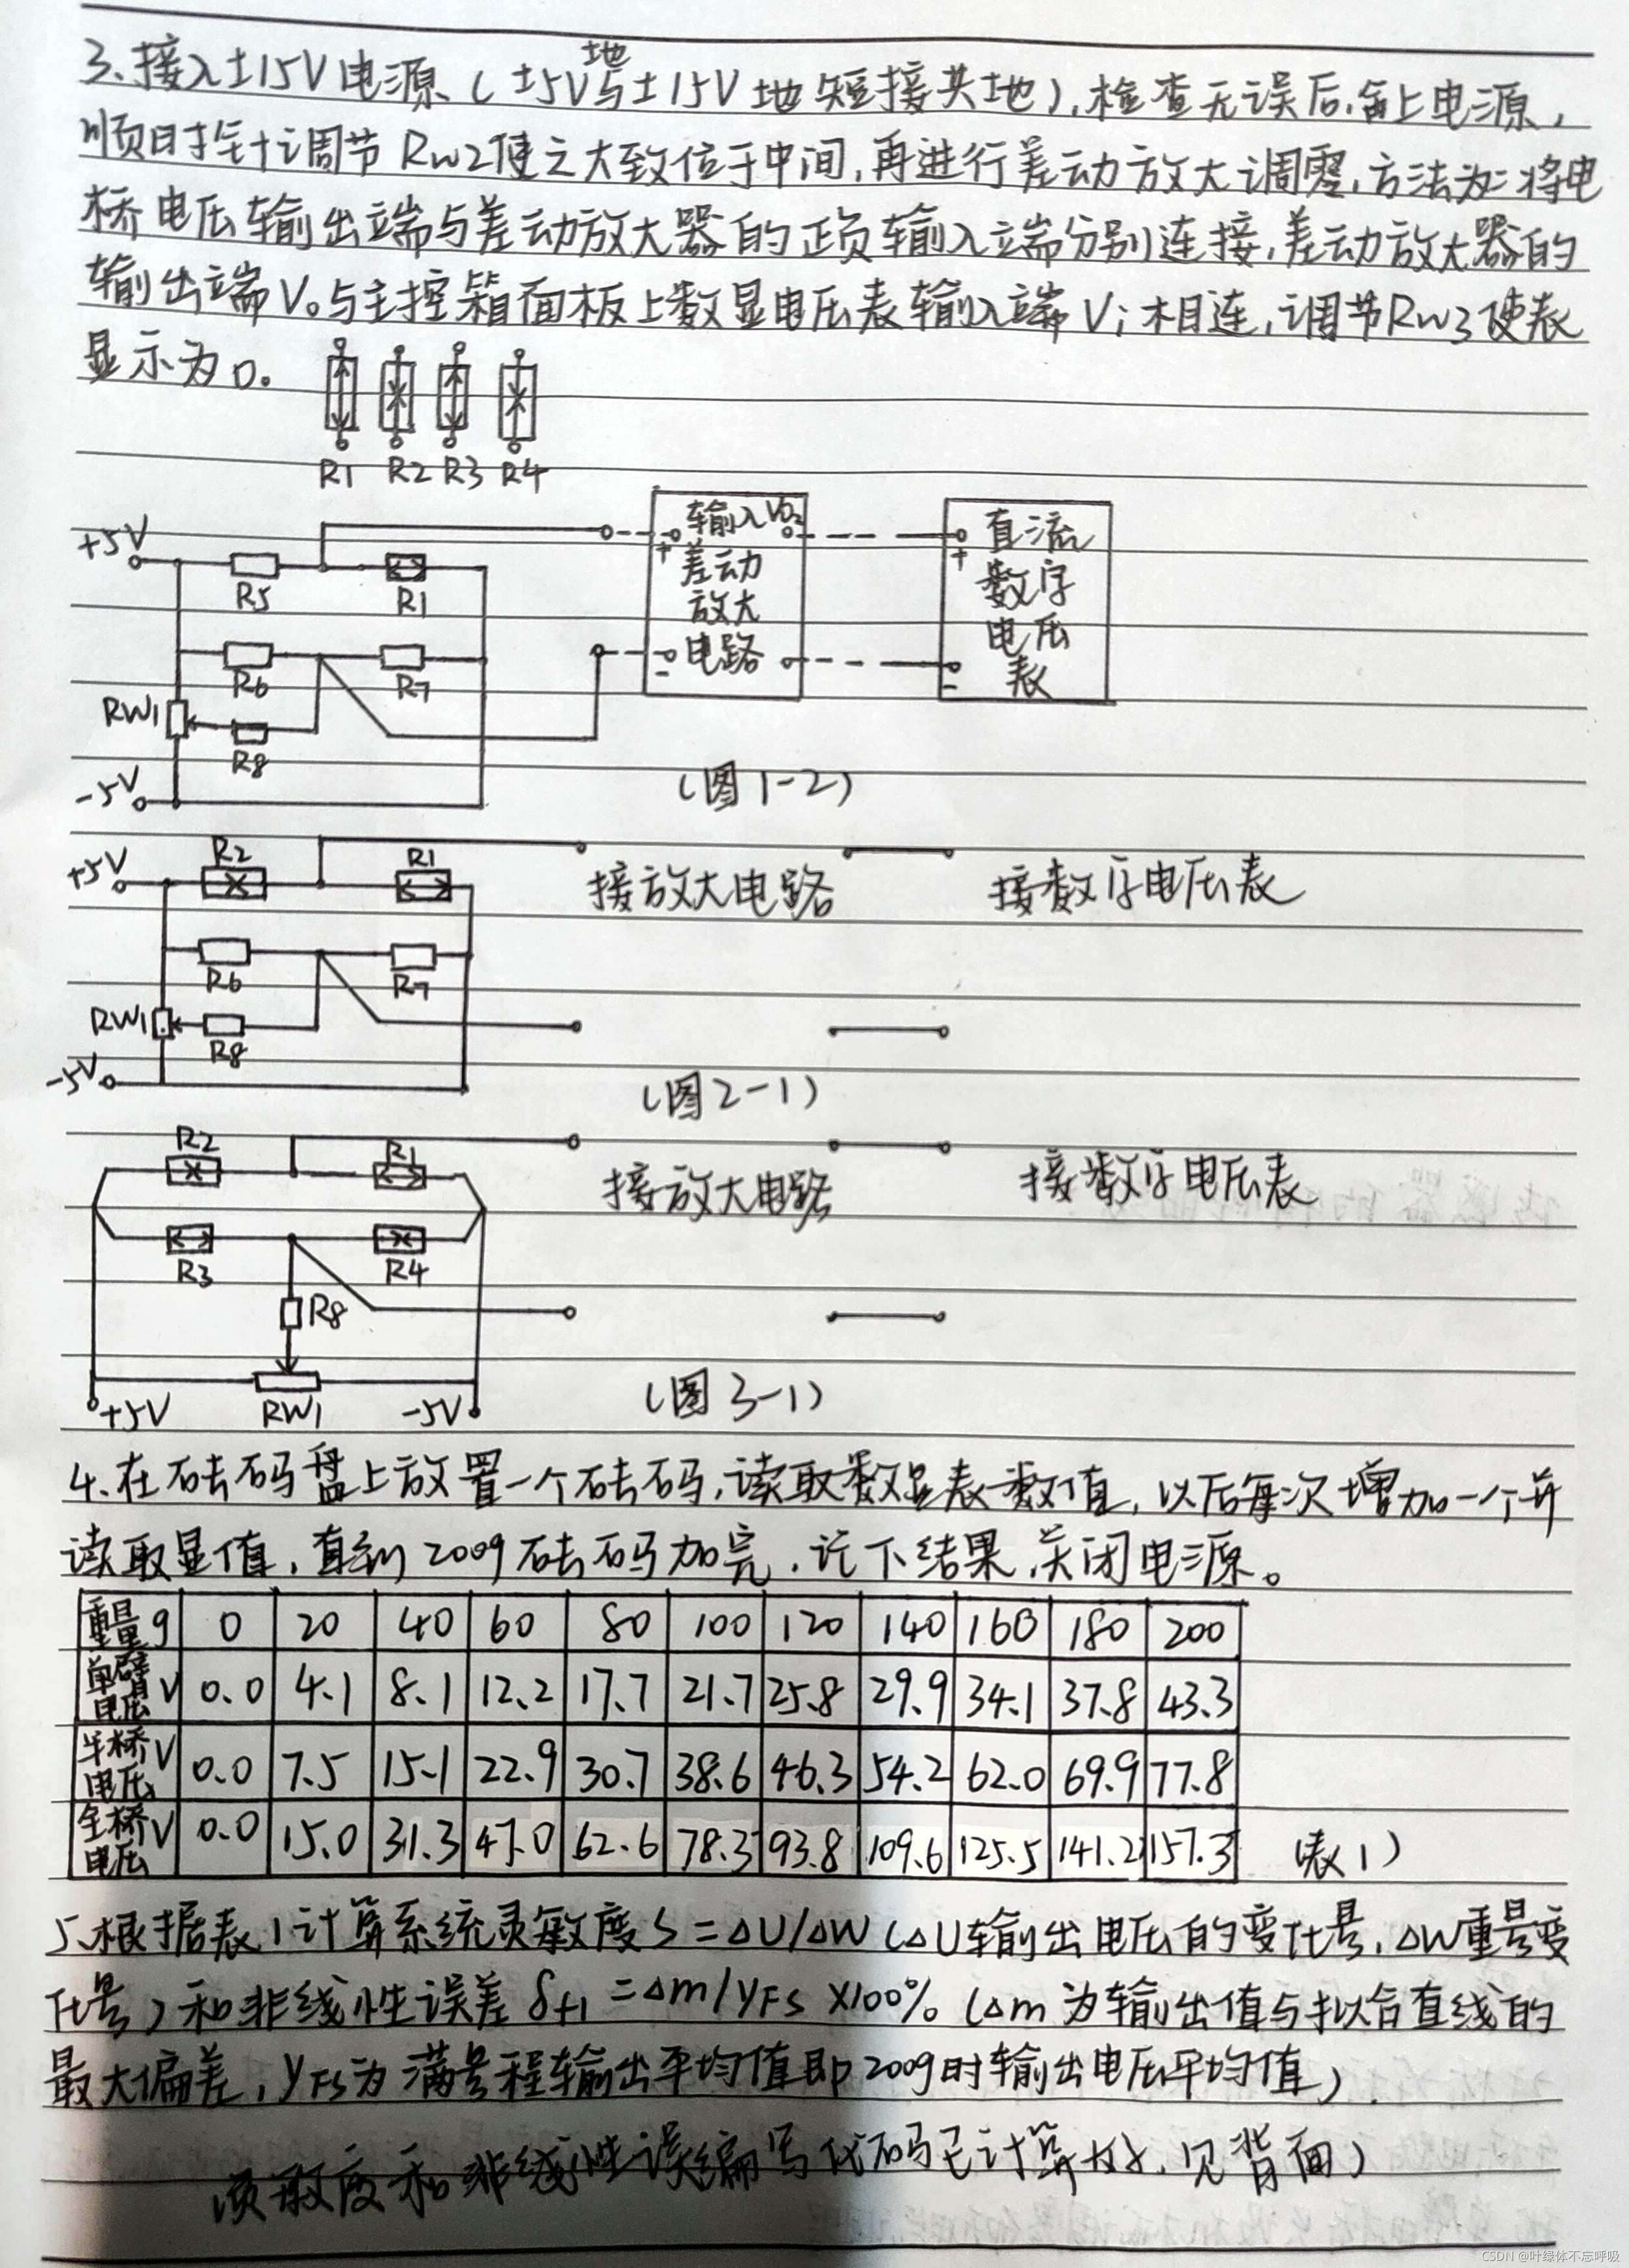 地
3、接入±15V电源(±5V与±15V地短接共地),检查无误后,合上电源,
顺时针调节RW2使之大致位于中间,再进行差动放大调零,方法为:将电
桥电压输出端与差动放大器的正负输入端分别连接,差动放大器的
输出端V。与主控箱面板上数显电压表输入端Vi相连,调节RW3使表
显示为0。
R1 R2 R3 R4
+5V R5 R1 输入 V02 直流
+ 差动 + 数字
放大 电压
R6 R7 - 电路 - 表
RW1 R8
-5V (图1-2)
+5V R2 R1 接放大电路 接数字电压表
R6 R7
RW1 R8
-5V (图2-1)
R2 R1 接放大电路 接数字电压表
R3 R4
R8
+5V RW1 -5V (图3-1)
4、在砝码盘上放置一个砝码,读取数显表数值,以后每次增加一个并
读取显值,直到200g砝码加完,记下结果,关闭电源。
重量g 0 20 40 60 80 100 120 140 160 180 200
单臂电压V 0.0 4.1 8.1 12.2 17.7 21.7 25.8 29.9 34.1 37.8 43.3
半桥电压V 0.0 7.5 15.1 22.9 30.7 38.6 46.3 54.2 62.0 69.9 77.8
全桥电压V 0.0 15.0 31.3 47.0 62.6 78.3 93.8 109.6 125.5 141.2 157.3 (表1)
5、根据表1计算系统灵敏度S=ΔU/ΔW(ΔU输出电压的变化量,ΔW重量变
化量)和非线性误差δf1=Δm/yFS×100%(Δm为输出值与拟合直线的
最大偏差,yFS为满量程输出平均值即200g时输出电压平均值)
(灵敏度和非线性误编写代码已计算好,见背面)
CSDN @叶绿体不忘呼吸